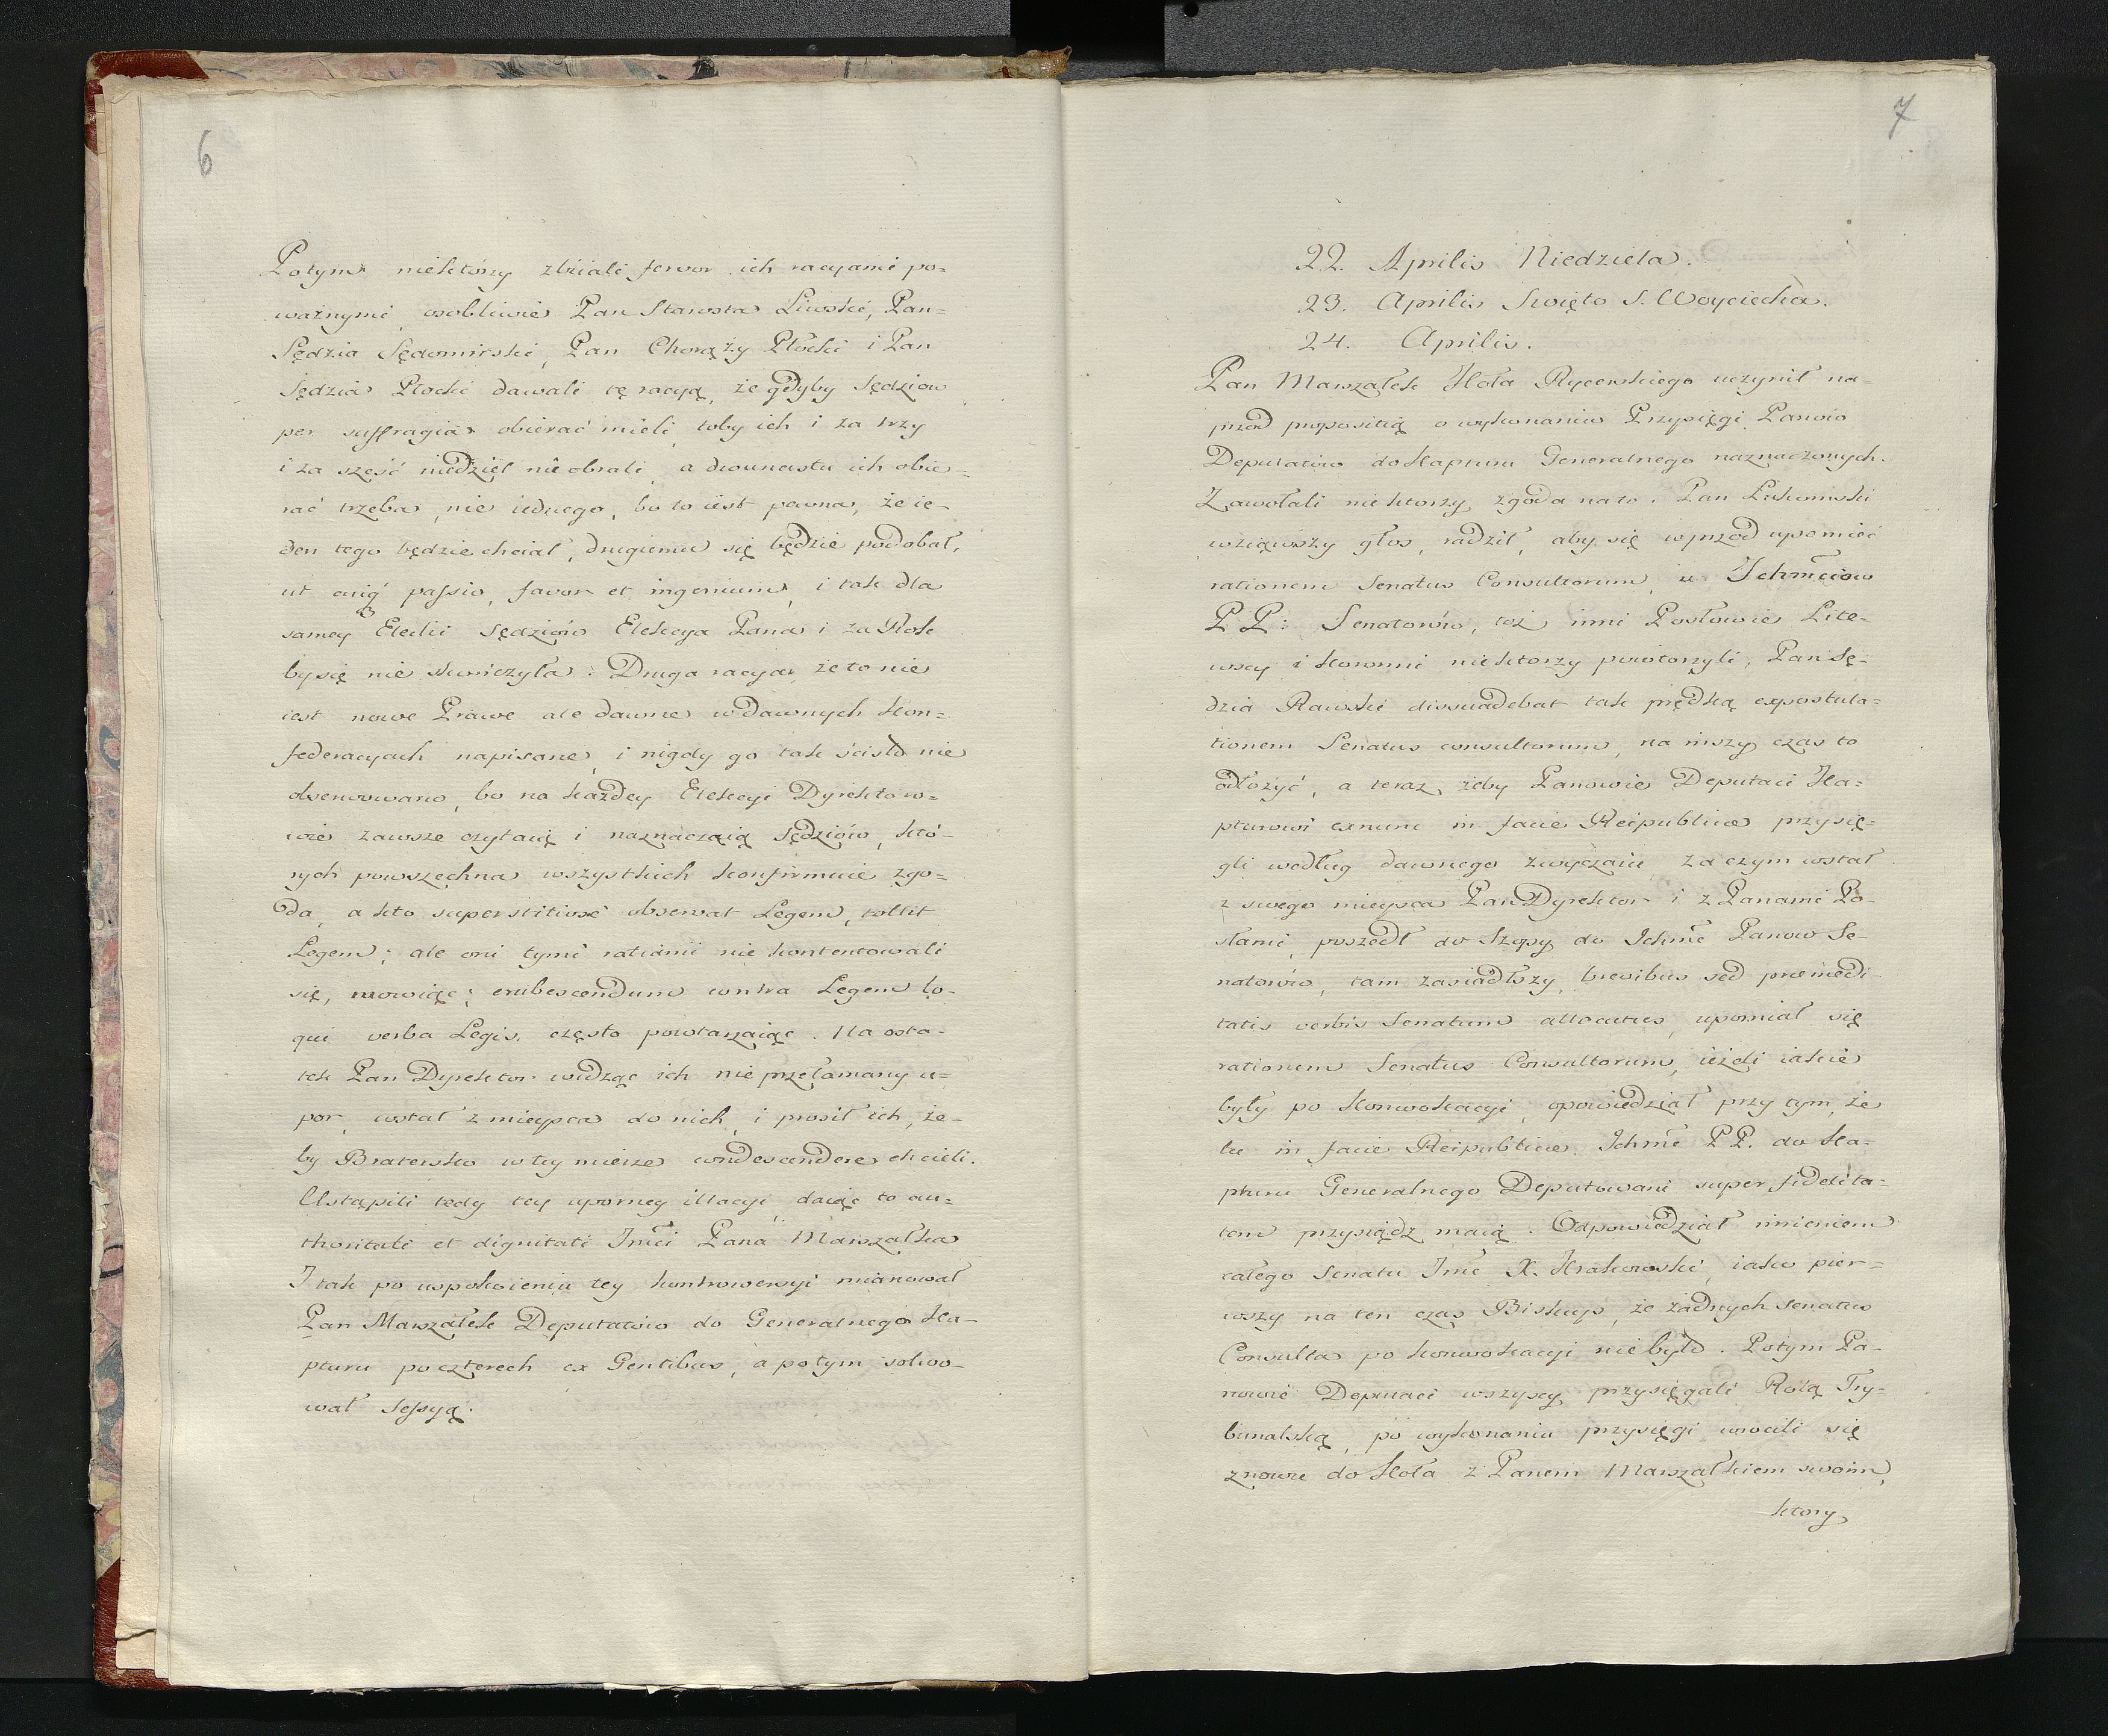 6
Potym niektórzy zbiiali ferwor ich racyami po=
ważnymi, osobliwie Pan Starosta Liwski, Pan=
Sędzia Sędomirski, Pan Chorąży Płocki i Pan
Sędzia Płocki dawali tę racyą, że gdyby Sędziow
per suffragia obierać mieli, toby ich i za trzy
i za sześć niedziel nie obrali, a dwunastu ich obie=
rać trzeba, nie iednego, bo to iest pewna, że ie-
den tego będzie chciał, drugiemu się będzie podobał,
ut cuiq passio, favor et ingenium, i tak dla
samey Elekcii Sędziów Elekcya Pana i za Rok
by się nie skończyła: Druga racya, że to nie
iest nowe Prawe ale dawne w dawnych Kon=
federacyach napisane, i nigdy go tak ściśło nie
obserwowano, bo na każdey Elekcyi Dyrektoro=
wie zawsze czytaią i naznaczaią Sędziów, któ-
rych powszechna wszystkich konfirmuie zgo=
da, a kto superstitiose observat Legem, tollit
Legem; ale oni tymi ratiami nie kontentowali
się, mowiąc; erubescendum contra Legem lo-
qui verba Legis, często powtarzaiąc. Na osta-
tek Pan Dyrektor widząc ich nieprzełamany u=
por, wstał z mieysca do nich, i prosił ich, że-
by Bratersko w tey mierze condescendere chcieli.
Ustąpili tedy tey uporney illacyi, daiąc to au=
thoritati et dignitati Jmci Pana Marszałka
I tak po uspokoieniu tey kontrowersyi mianował
Pan Marszałek Deputatów do Generalnego Ka-
pturu po czterech ex Gentibus, a potym solwo-
wał Sessyą.
7
22. Aprilis Niedziela.
23. Aprilis Święto S. Woyciecha.
24. Aprilis.
Pan Marszałek Koła Rycerskiego uczynił na-
przód propositią o wykonaniu Przysięgi Panów
Deputatów do Kapturu Generalnego naznaczonych.
Zawołali niektorzy zgoda na to. Pan Łukomski
wziąwszy głos, radził, aby się wprzod upomieć
rationem Senatus Consultorum, u Ichmciow
PP: Senatorów, toż inni Posłowie Lite-
wscy i Koronni niektorzy powtorzyli, Pan Sę-
dzia Rawski dissuadebat tak prędką expostula=
tionem Senatus consultorum, na inszy czas to
odłożyć, a teraz żeby Panowie Deputaci Ka=
pturowi exnunc in facie Reipublicae przysię=
gli według dawnego zwyczaiu, zaczym wstał
z swego mieysca Pan Dyrektor i z Panami Po-
słami, poszedł do Szopy do Ichmc Panow Se-
natorów, tam zasiadłszy, brevibus sed praemedi-
tatis verbis Senatum allocutus, upomniał się
rationem Senatus Consultorum, ieżeli iakie
były po Konwokacyi, opowiedział przy tym, że
tu in facie Reipublicae. Ichmc PP. do Ka=
pturu Generalnego Deputowani super fidelita=
tem przysiądz maią. Odpowiedział imieniem
całego Senatu Jmc X. Krakowski, iako pier=
wszy na ten czas Biskup, że żadnych Senatus
Consulta po konwokacyi nie było. Potym Pa-
nowie Deputaci wszyscy przysięgali Rotą Try=
bunalską, po wykonaniu przysięgi wrocili się
znowu do Koła z Panem Marszałkiem swoim,
ktory